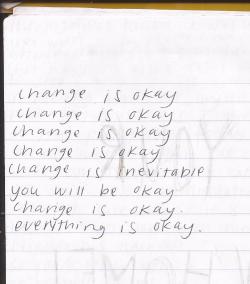 change is okay
change is okay
change is okay
change is okay
change is inevitable
you will be okay
change is okay.
everything is okay.